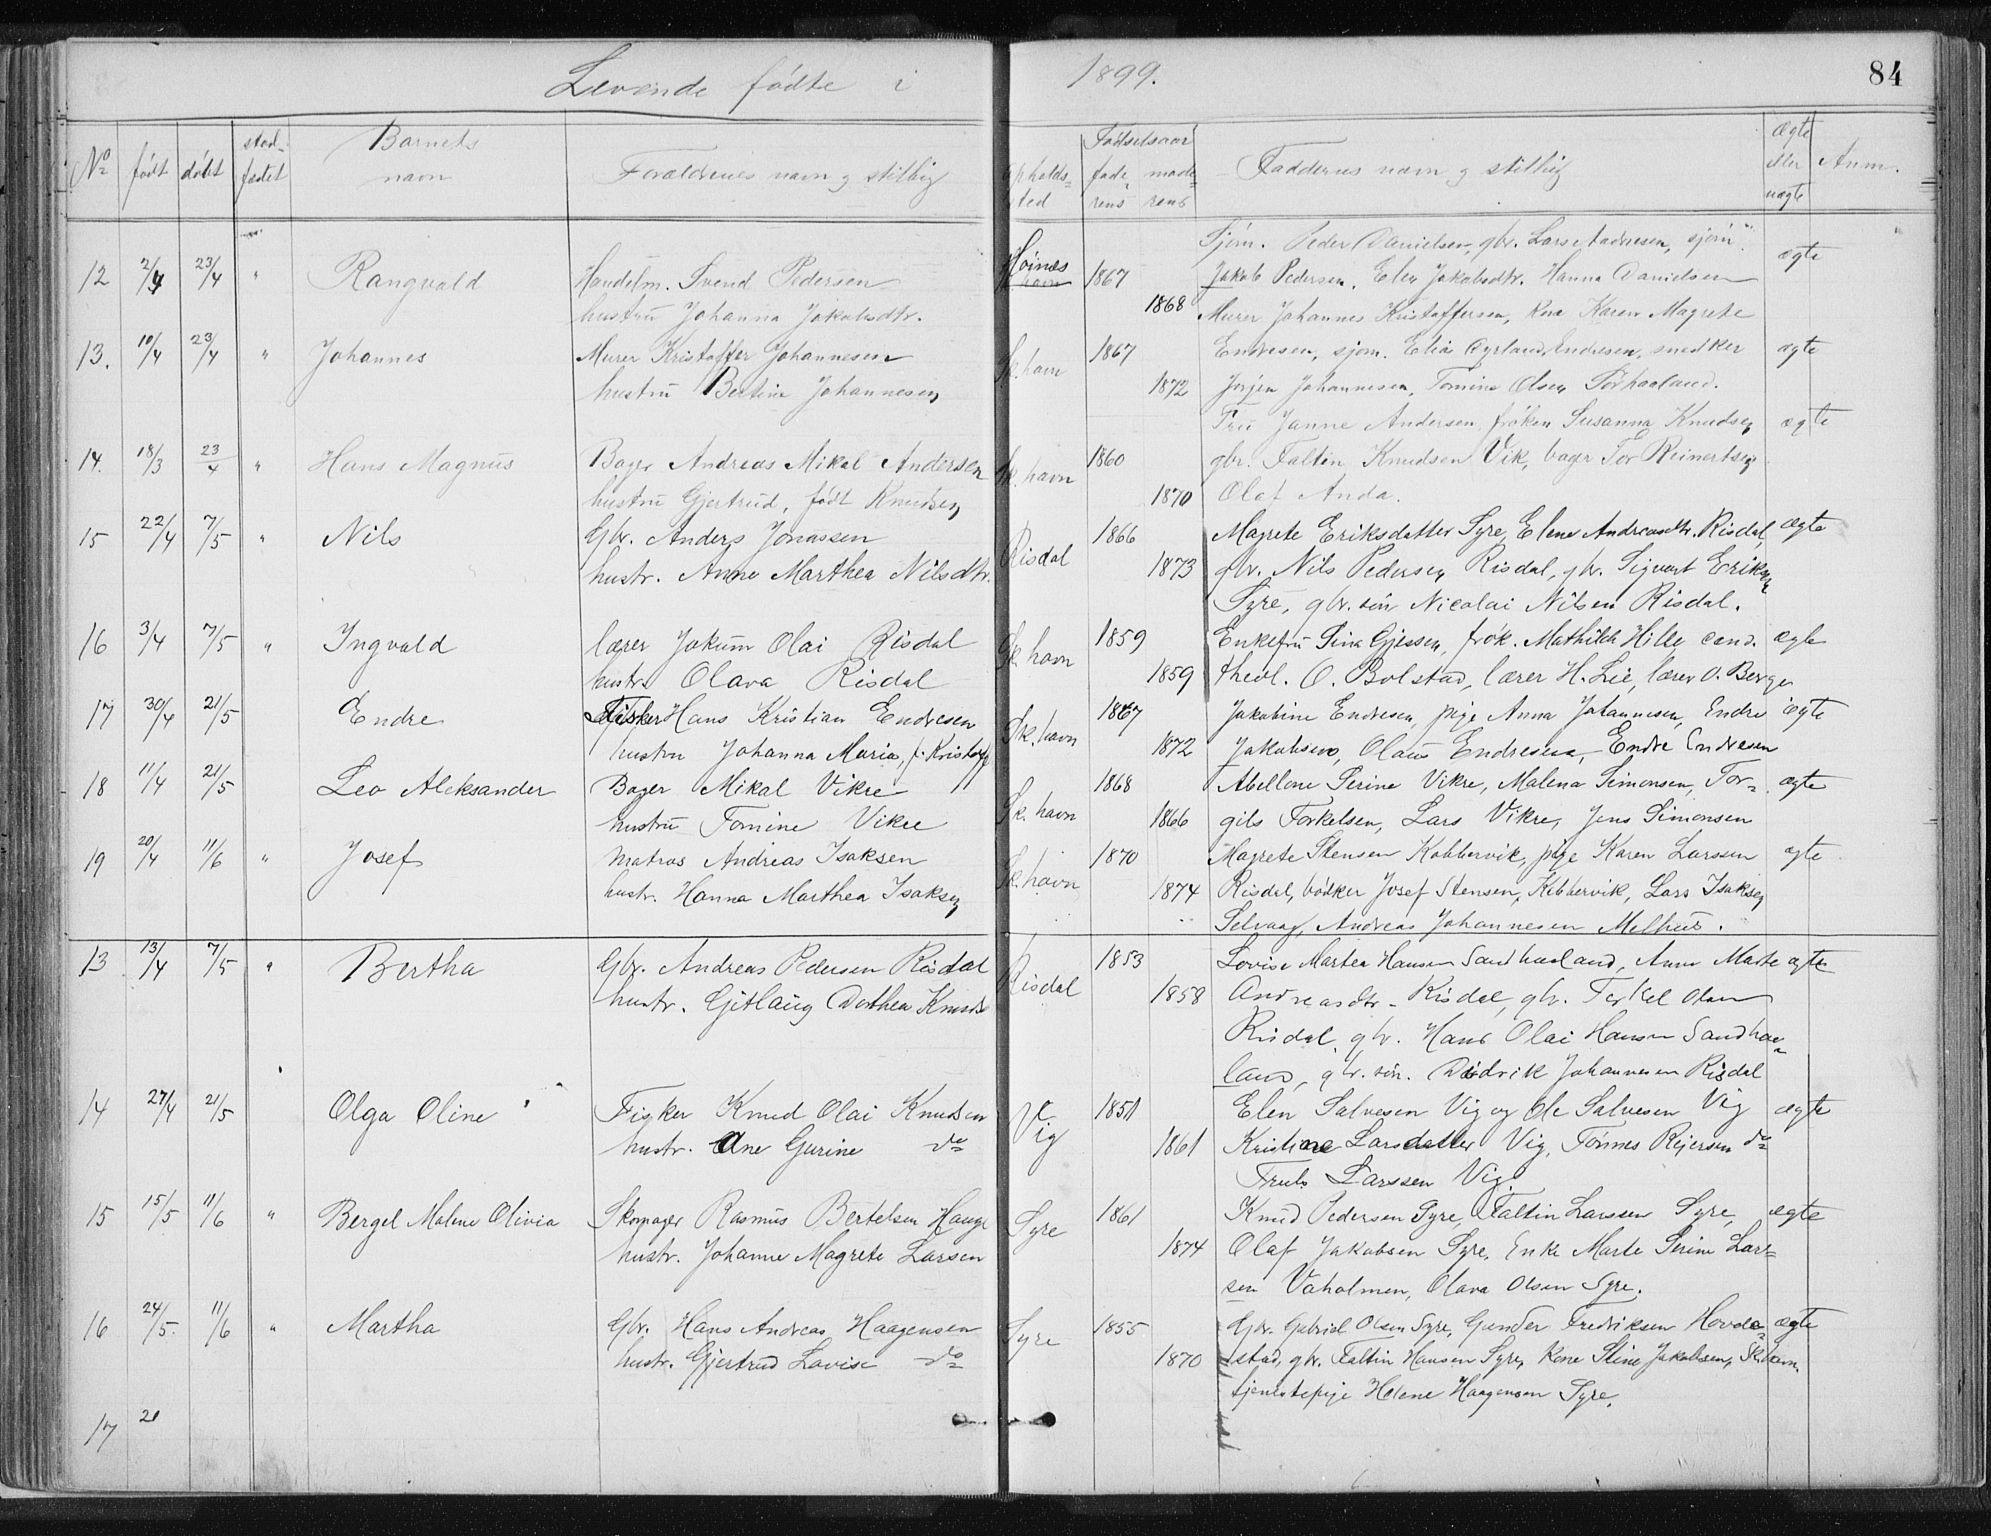 Levende fødte i 1899. 84
No født døbt stadfæstet Barnets navn Forældrenes navn og stillig Opholdssted Fødselsaar faderens moderens Faddernes navn og stillig ægte eller uægte Anm.
Sjøm. Peder Danielsen, gbr. Lars Andresen, sjøm.
12 2/4 23/4 " Rangvald Handelm. Svend Pedersen Høines 1867 Jakob Pedersen, Elen Jakobsdtr. Hanna Danielsen ægte
hustru Johanna Jakobsdtr. 1868 Murer Johannes Kristoffersen, Kona Karen Magrete
13. 10/4 23/4 " Johannes Murer Kristoffer Johannesen Sk.havn 1867 Endresen, sjøm. Elias Endresen, snedker ægte
hustru Bertine Johannesen 1872 Jørgen Johannesen, Tomine Olsen Sørhaaland.
Fru Janne Andersen, frøken Susanna Knudsen ægte
14. 18/3 23/4 " Hans Magnus Bager Andreas Mikal Andersen Sk.havn 1860 gbr. Faltin Knudsen Vik, bager Tor Reinertsen
hustru Gjertrud, født Knudsen 1870 Olaf Anda.
15 22/4 7/5 " Nils Gbr. Anders Jonassen Risdal 1866 Magrete Eriksdatter Syre, Elene Andreasdtr. Risdal, ægte
hustr. Anne Marthea Nilsdtr. 1873 gbr. Nils Pedersen Risdal, gbr. Sigvart Eriksen
Syre, gbr. søn Nicolai Nilsen Risdal.
16 3/4 7/5 " Ingvald lærer Jokum Olai Risdal Sk.havn 1859 Enkefru Sina Gjessen, frøk. Mathilde Hille cand. ægte
hustr. Olava Risdal 1859 theol. O. Bolstad, lærer H. Lie, lærer O. Berge
17 30/4 21/5 Endre Fisker Hans Kristian Endresen Sk.havn 1867 Jakobine Endresen, pige Anna Johannesen, Endre ægte
hustru Johanna Maria, f. Kristoff 1872 Jakobsen, Olaus Endresen, Endre Endresen
18 11/4 21/5 Leo Aleksander Bager Mikal Vikre Sk.havn 1868 Abellone Serine Vikre, Malena Simonsen, Tor- ægte
hustru Tomine Vikre 1866 gils Torkelsen, Lars Vikre, Jens Simonsen
19 20/4 11/6 " Josef Matros Andreas Isaksen Sk.havn 1870 Magrete Stensen Kobbervik, pige Karen Larssen ægte
hustr. Hanna Marthea Isaksen 1874 Risdal, bødker Josef Stensen, Kobbervik, Lars Isaksen
Selvaag, Andreas Johannesen Melhus.
13 13/4 7/5 " Bertha Gbr. Andreas Pedersen Risdal Risdal 1853 Lovise Martea Hansen Sandhaaland, Anne Marte ægte
hustr. Gitlaug Dorthea Knuds 1858 Andreasdtr. Risdal, gbr. Torkel Olsen
Risdal, gbr. Hans Olai Hansen Sandhaa-
land, gbr. søn. Didrik Johannesen Risdal
14 27/4 21/5 Olga Oline Fisker Knud Olai Knudsen Vig 1851 Elen Salvesen Vig og Ole Salvesen Vig ægte
hustr. Ane Gurine do 1861 Kristiane Larsdatter Vig, Tønnes Reiersen do
Truls Larssen Vig
15 15/5 11/6 " Bergel Malene Olivia Skomager Rasmus Bertelsen Hauge Syre 1861 Knud Pedersen Syre, Faltin Larssen Syre, ægte
hustr. Johanne Magrete Larsen 1874 Olaf Jakobsen Syre, Enke Marte Serine Lars-
sen Vaholmen, Olava Olsen Syre.
16 24/5. 11/6 " Martha Gbr. Hans Andreas Haagensen Syre 1855 Gbr. Gabriel Olsen Syre, Gunder Fredriksen Hovde- ægte
hustr. Gjertrud Lovise do 1870 stad, gbr. Faltin Hansen Syre, Kone Stine Jakobsen, Sk.havn.
tjenestepige Helene Haagensen Syre.
17 21